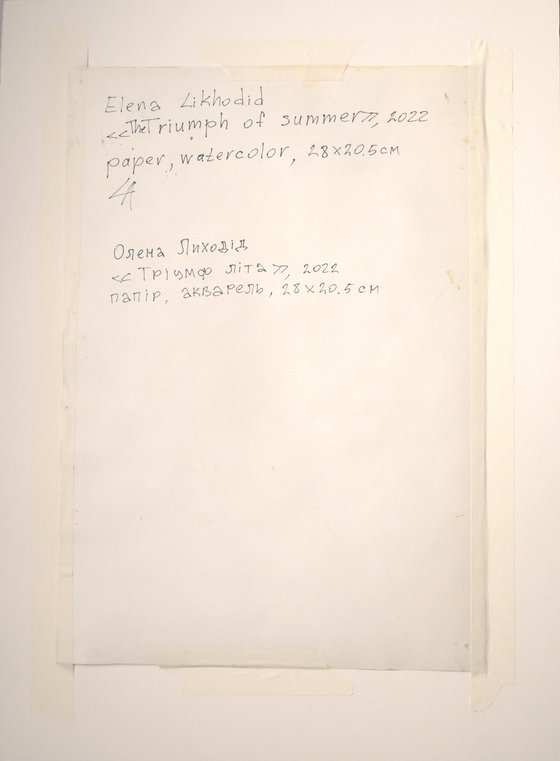 Elena Likhodid
<<The Triumph of summer>>, 2022
paper, watercolor, 28x20.5см
Олена Лиходід
<< Тріумф літа >>, 2022
папір, акварель, 28x20.5 см